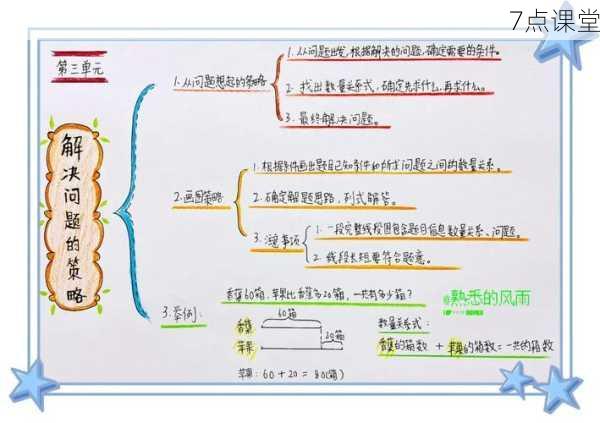 7点课堂
第三单元
解决问题的策略
1.从问题想起的策略
1.从问题出发,根据解决的问题,确定需要的条件。
2.找出数量关系式,确定先求什么,再求什么。
3.最终解决问题。
2.画图策略
1.根据条件画出题目已知条件和所求问题之间的数量关系。
2.确定解题思路,列式解答。
3.注意事项
1.一段完整线段图包含题目信息数量关系、问题。
2.线段长短要符合题意。
3.举例:
香蕉60箱,苹果比香蕉多20箱,一共有多少箱?
60箱
香蕉
苹果
20箱
苹果:60+20=80(箱)
数量关系式:
香蕉的箱数+苹果的箱数=一共的箱数
@熟悉的风雨